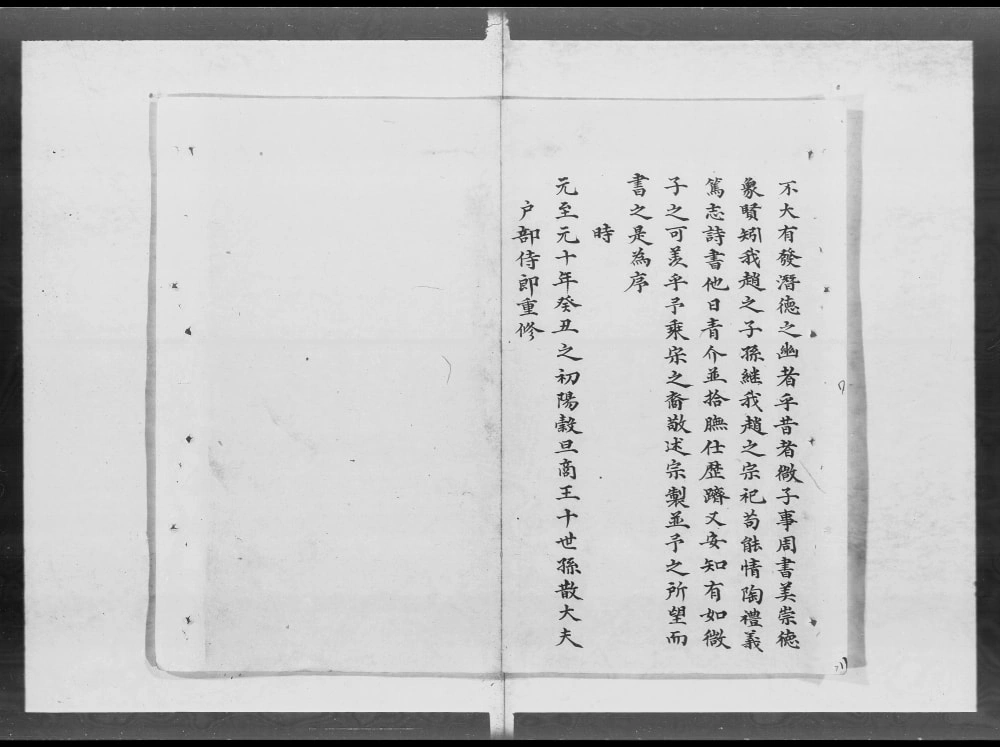 不大有發潛德之幽者乎昔者微子事周書美崇德
象賢矧我趙之子孫継我趙之宗祀苟能情陶禮義
篤志詩書他日青介並拾膴仕歷躋又安知有如微
子之可羡乎予乘宗之裔敬述宗製並予之所望而
書之是為序
時
元至元十年癸丑之初陽穀旦商王十世孫散大夫
户部侍郎重修